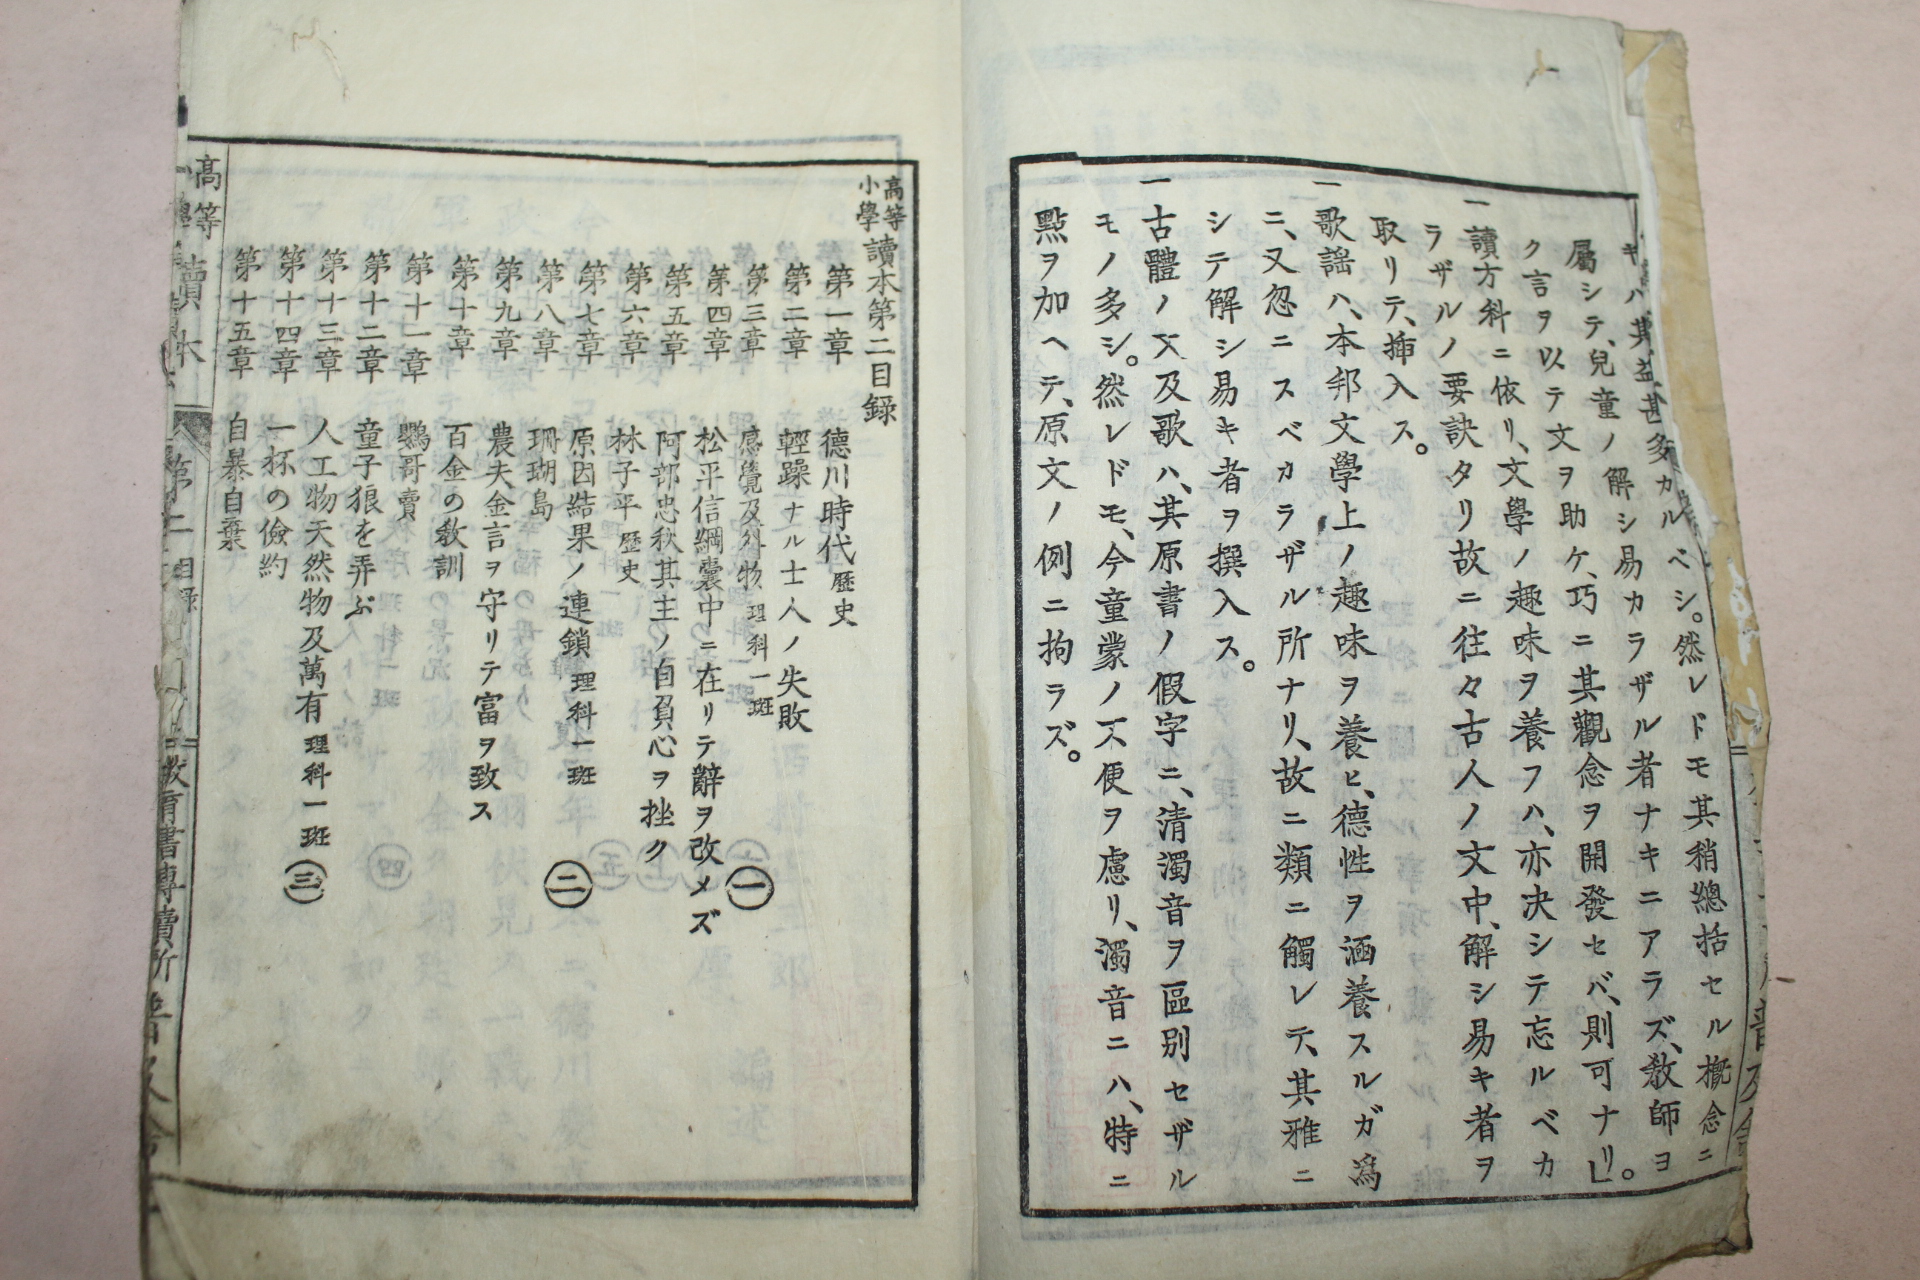 キハ、其益甚多カルベシ。然レドモ其稍總括セル概念ニ
屬シテ、兒童ノ解シ易カラザル者ナキニアラズ、教師ヨ
ク言ヲ以テ文ヲ助ケ、巧ニ其觀念ヲ開發セバ、則可ナリ」。
一讀方科ニ依リ、文學ノ趣味ヲ養フハ、亦決シテ忘ルベカ
ラザルノ要訣タリ故ニ往々古人ノ文中、解シ易キ者ヲ
取リテ、挿入ス。
一歌謡ハ、本邦文學上ノ趣味ヲ養ヒ、德性ヲ涵養スルガ爲
ニ、又忽ニスベカラザル所ナリ、故ニ類ニ觸レテ、其雅ニ
シテ解シ易キ者ヲ撰入ス。
一古體ノ文及歌ハ、其原書ノ假字ニ、清濁音ヲ區別セザル
モノ多シ。然レドモ、今童蒙ノ不便ヲ慮リ、濁音ニハ、特ニ
點ヲ加ヘテ、原文ノ例ニ拘ラズ。
高等小學讀本第二目錄
第一章 德川時代 歷史
第二章 輕躁ナル士人ノ失敗
第三章 感覺及外物 理科一班 ㊀
第四章 松平信綱囊中ニ在リテ辭ヲ改メズ
第五章 阿部忠秋其主ノ自負心ヲ挫ク
第六章 林子平 歷史
第七章 原因結果ノ連鎖 理科一班 ㊁
第八章 珊瑚島
第九章 農夫金言ヲ守リテ富ヲ致ス
第十章 百金の敎訓
第十一章 鸚哥賣
第十二章 童子狼を弄ぶ
第十三章 人工物天然物及萬有 理科一班 ㊂
第十四章 一杯の儉約
第十五章 自暴自棄
高等 讀本 第二 目錄 教育書專賣所 普及舍